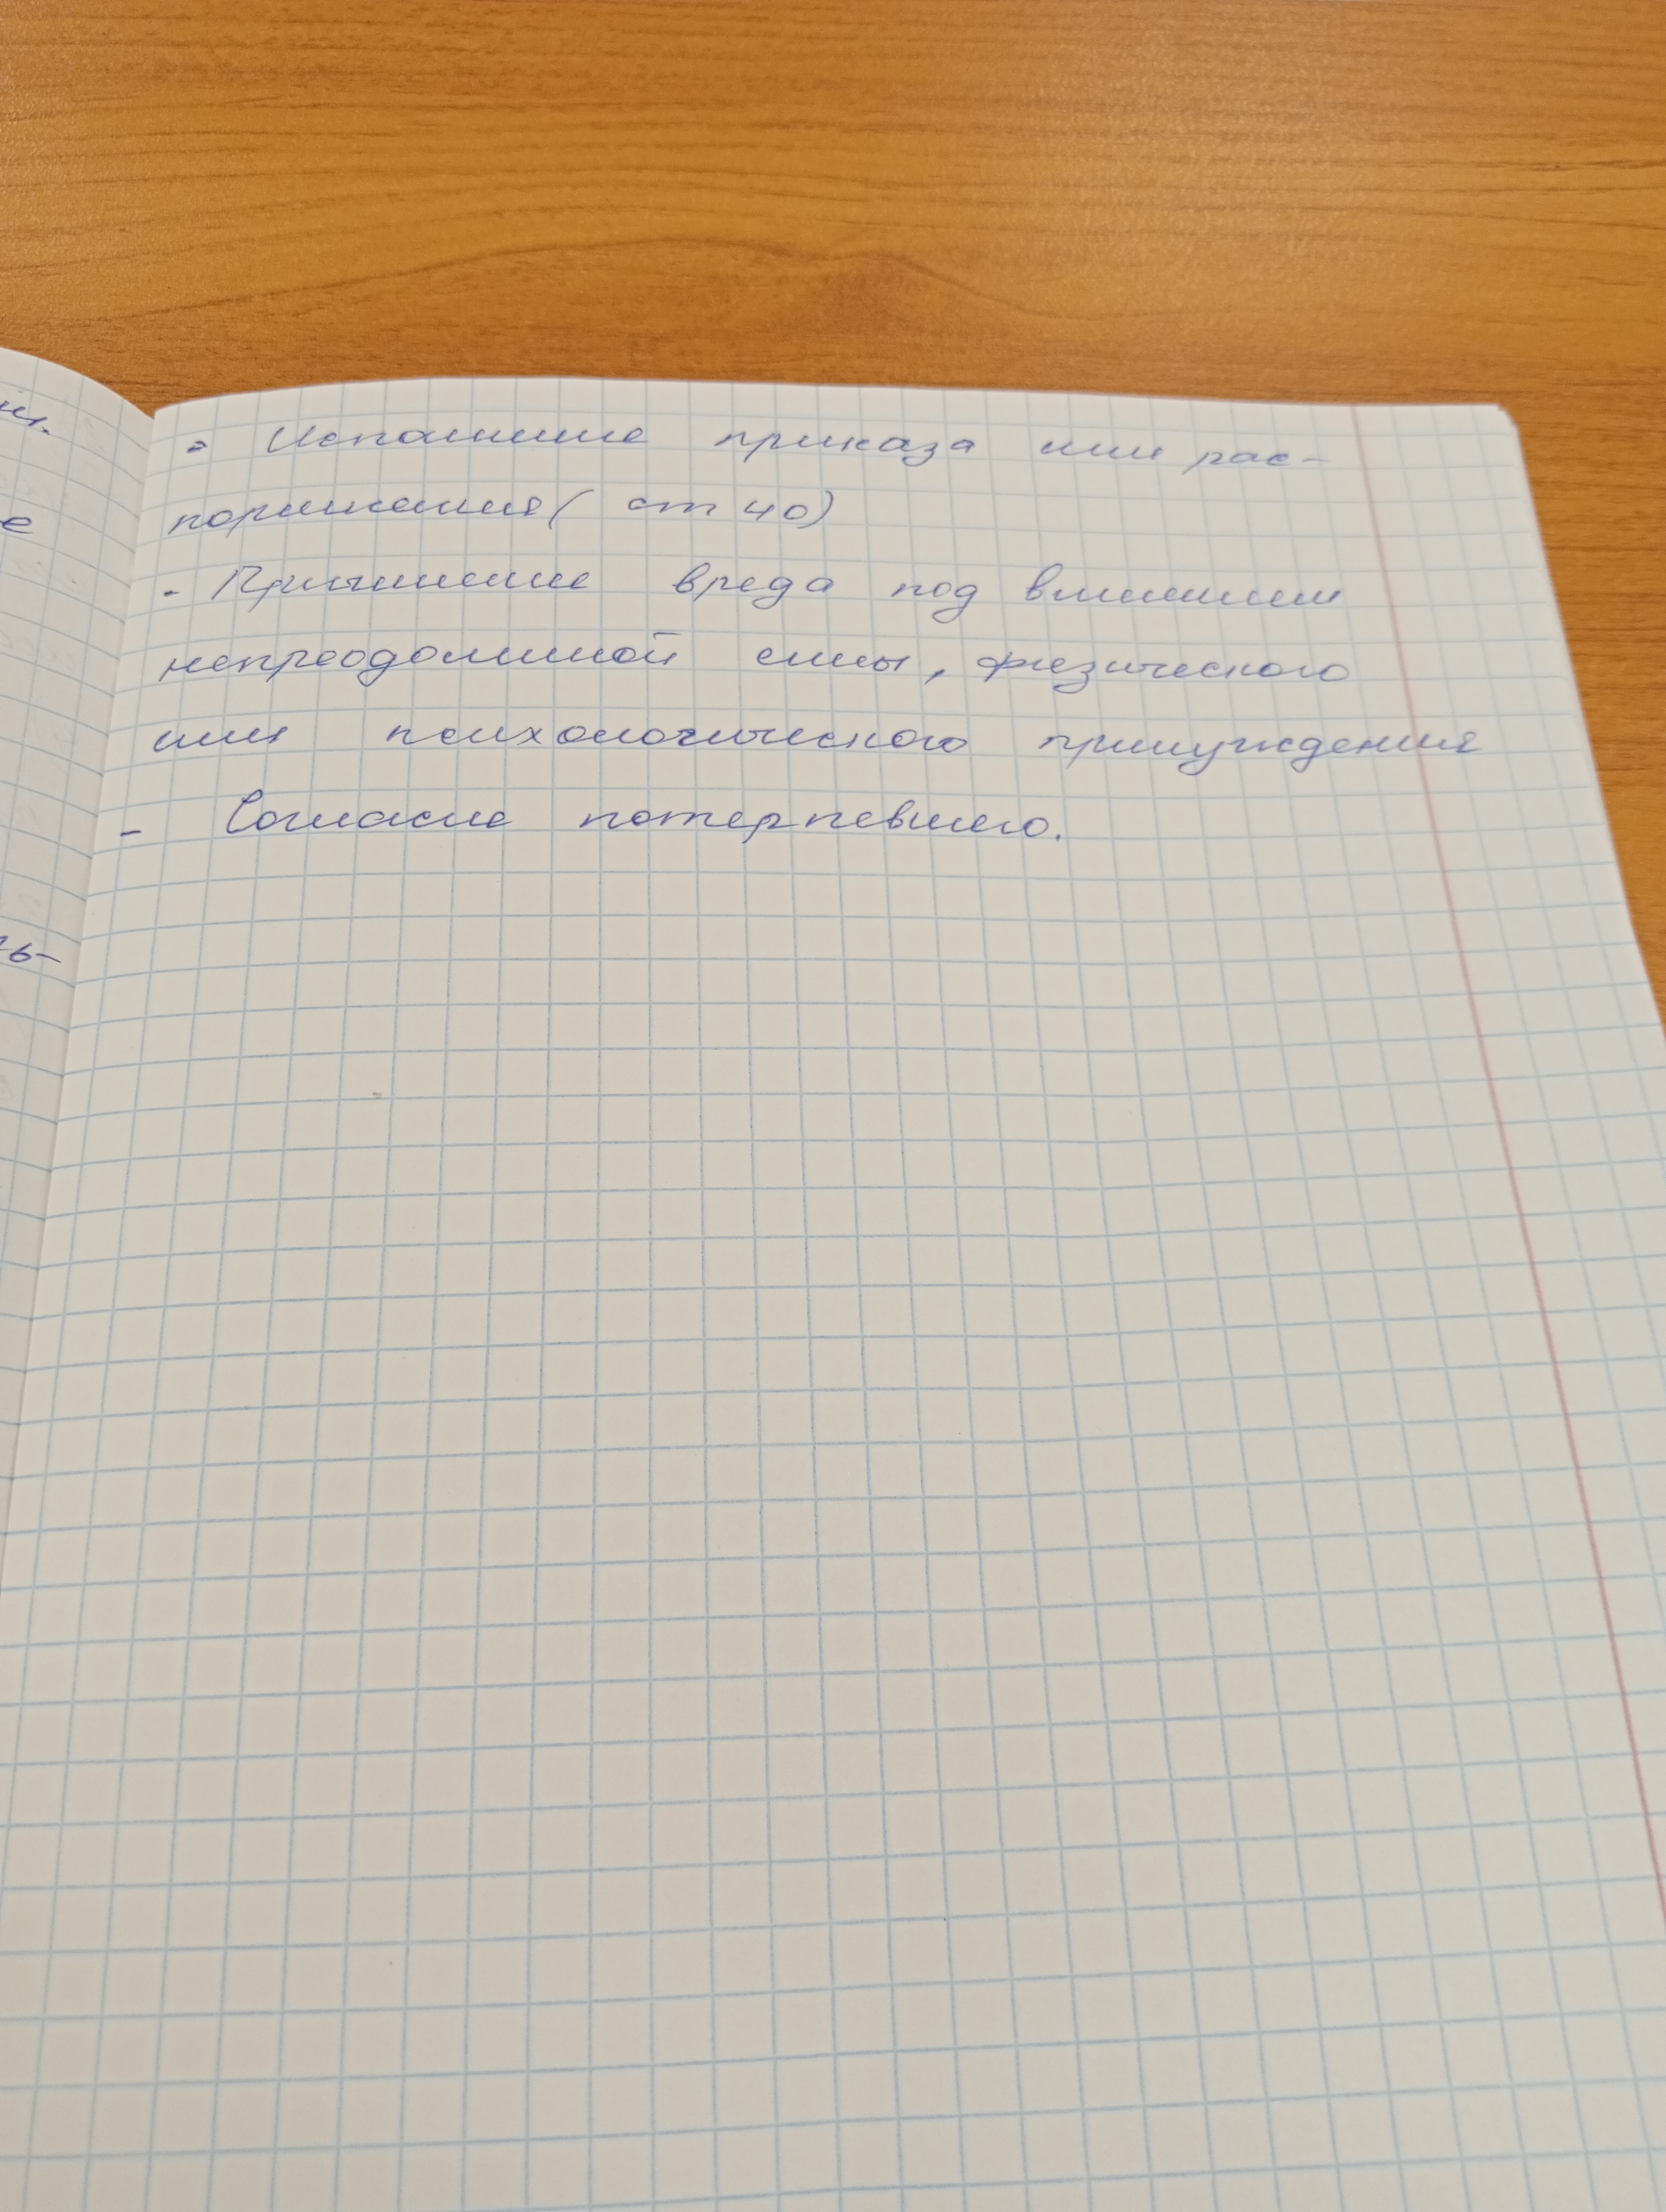 - Исполнение приказа или рас-
поряжения ( ст 40)
- Причинение вреда под влиянием
непреодолимой силы, физического
или психологического принуждения
- Согласие потерпевшего.